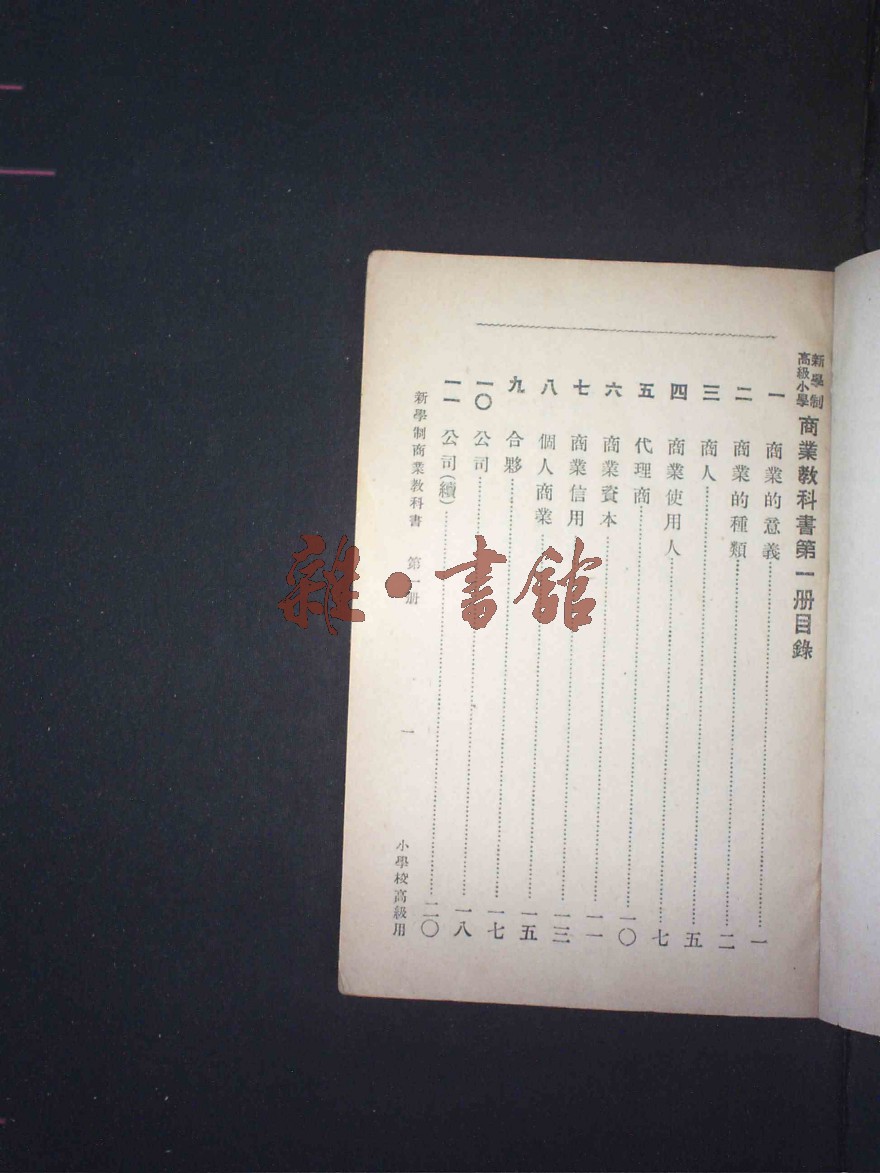 新學制
高級小學
商業教科書第一册目錄
一 商業的意義 一
二 商業的種類 二
三 商人 五
四 商業使用人 七
五 代理商 一〇
六 商業資本 一一
七 商業信用 一三
八 個人商業 一五
九 合夥 一七
一〇 公司 一八
一一 公司(續) 二〇
新學制商業教科書 第一册 一 小學校高級用
雜·書館